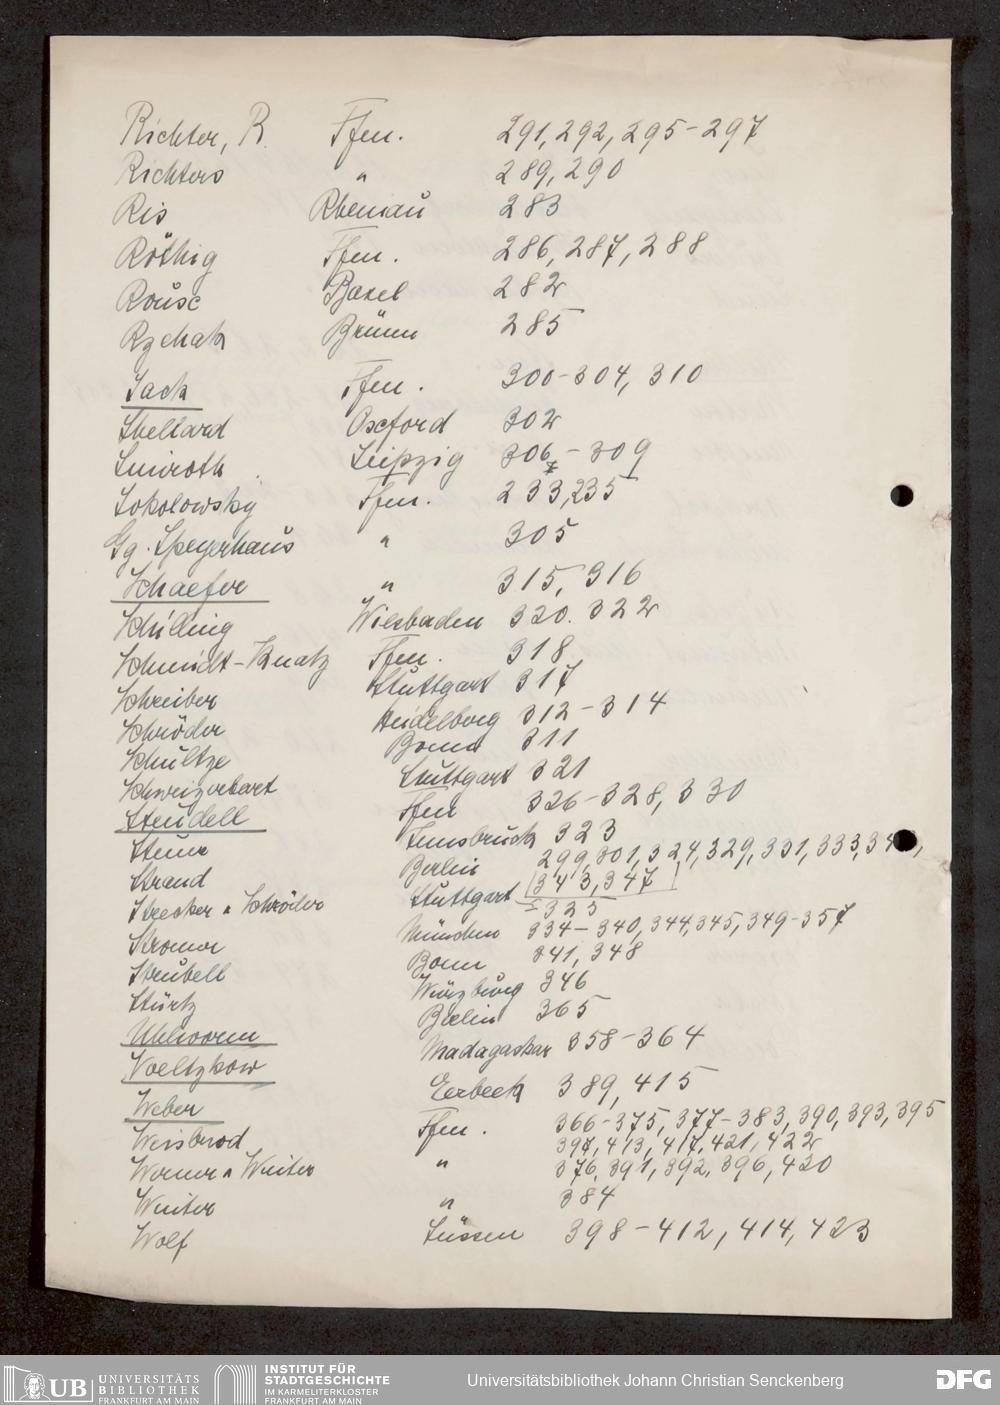 Richter, R. Ffm. 291, 292, 295-297
Richters " 289, 290
Ris Rheinau 283
Röthig Ffm. 286, 287, 288
Rouse Basel 282
Rzehak Brünn 285
Sack Ffm. 300-304, 310
Shellard Oxford 302
Simroth Leipzig 306-309
Sokolowsky Ffm. 233, 235
Gg. Speyerhaus " 305
Schaefer " 315, 316
Schilling Wiesbaden 320. 322
Schmidt-Knatz Ffm. 318
Schreiber Stuttgart 317
Schröder Heidelberg 312-314
Schultze Bonn 311
Schweizerbart Stuttgart 321
Steudell Ffm 326-328, 330
Steuer Innsbruck 323
Strand Berlin 299, 301, 324, 329, 331, 333,
343, 347
Strecker u Schröder Stuttgart 325
Stromer München 334-340, 344, 345, 349-357
Strubell Bonn 341, 348
Stürtz Würzburg 346
Uhlworm Berlin 365
Voeltzkow Madagaskar 358-364
Weber Eerbeek 389, 415
Weisbrod Ffm. 366-375, 377-383, 390, 393, 395
397, 413, 417, 421, 422
Werner u Winter " 376, 391, 392, 396, 420
Winter " 384
Wolf Füssen 398-412, 414, 423
UB UNIVERSITÄTS
BIBLIOTHEK
FRANKFURT AM MAIN
INSTITUT FÜR
STADTGESCHICHTE
IM KARMELITERKLOSTER
FRANKFURT AM MAIN
Universitätsbibliothek Johann Christian Senckenberg
DFG